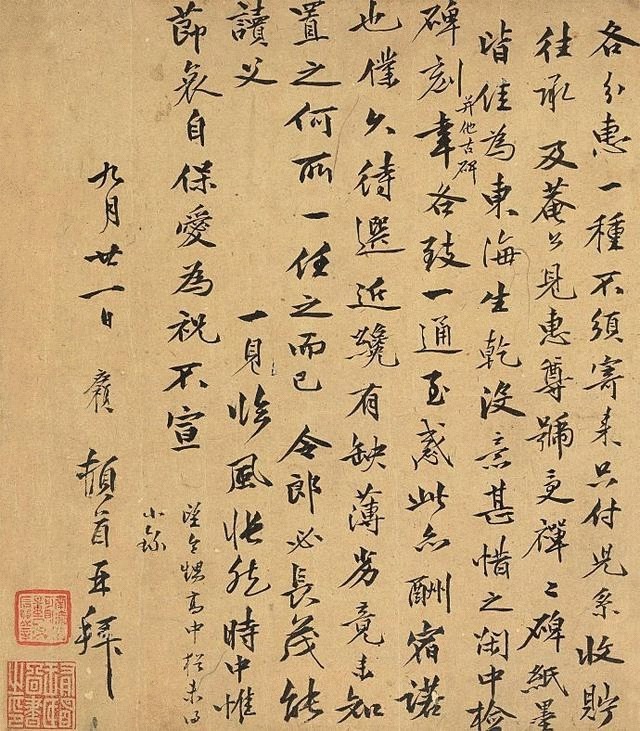 各分惠一種不須寄来只付兒系收貯
往承 及菴公見惠尊號受禪二碑紙墨
皆佳為東海生乾沒意甚惜之閑中檢
碑刻幸各致一通至感此亦酬宿諾
并他古碑
也僕久待選近纔有缺薄劣竟未知
置之何所一任之而已 令郎必長茂能
讀父
一見臨風悵然時中惟
節哀自保愛為祝不宣
望之甥高中
小錄
九月廿一日
頓首再拜